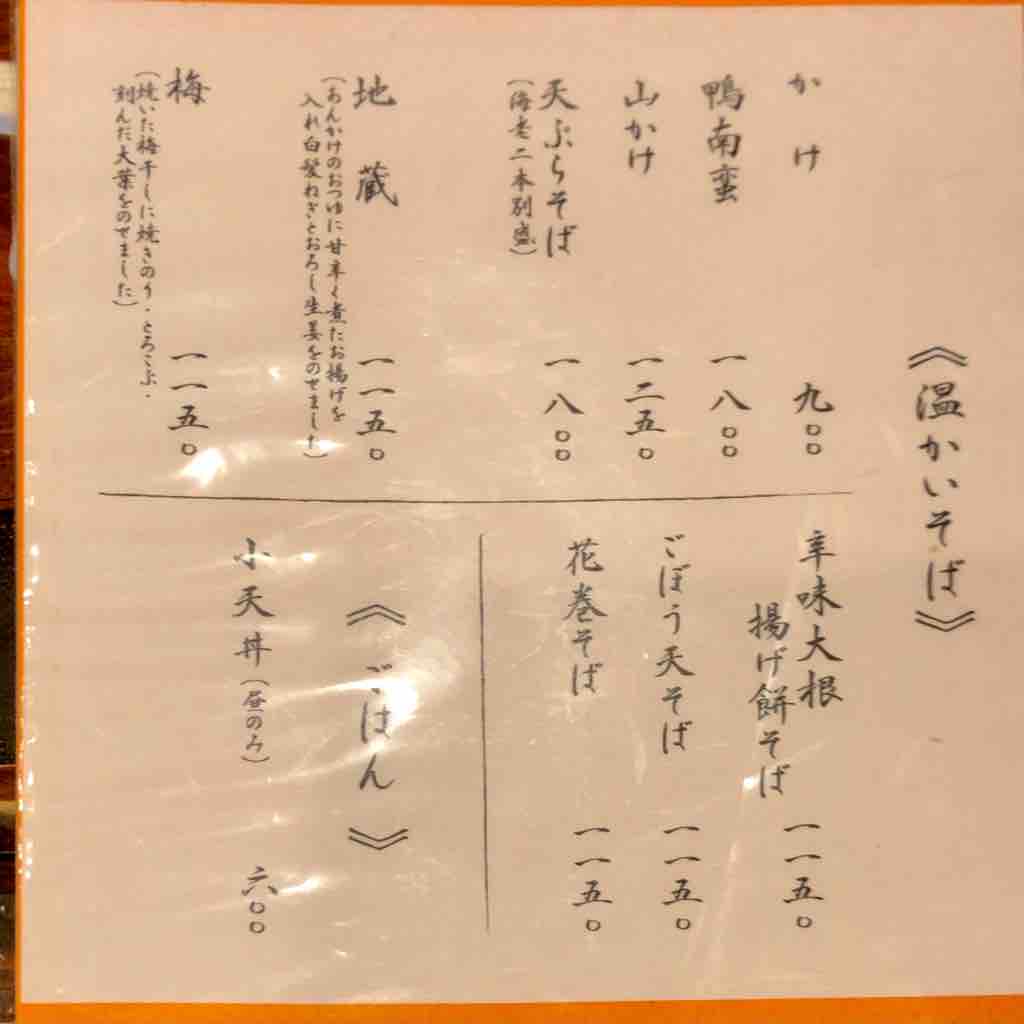 《温かいそば》
かけ 九〇〇
鴨南蛮 一八〇〇
山かけ 一二五〇
天ぷらそば 一八〇〇
（海老二本別盛）
地蔵 一一五〇
（あんかけのおつゆに甘辛く煮たお揚げを
入れ白髪ねぎとおろし生姜をのせました）
梅 一一五〇
（焼いた梅干しに焼きのり・とろろこぶ・
刻んだ大葉をのせました）
辛味大根
揚げ餅そば 一一五〇
ごぼう天そば 一一五〇
花巻そば 一一五〇
《ごはん》
小天丼（昼のみ） 六〇〇